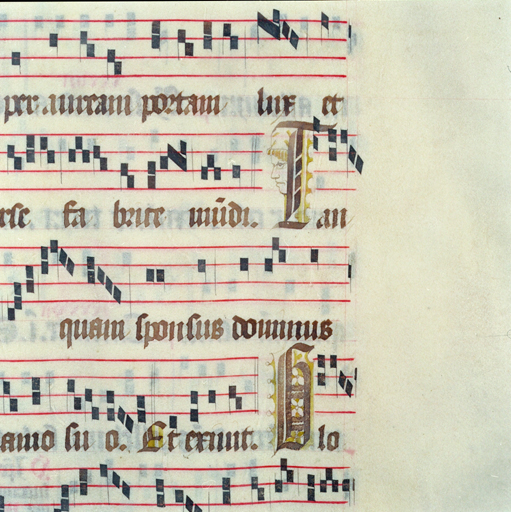 per auream portam lux et
rse fabrice mūdi. Tan
quam sponsus dominus
amo suo. Et exiuit. Glo